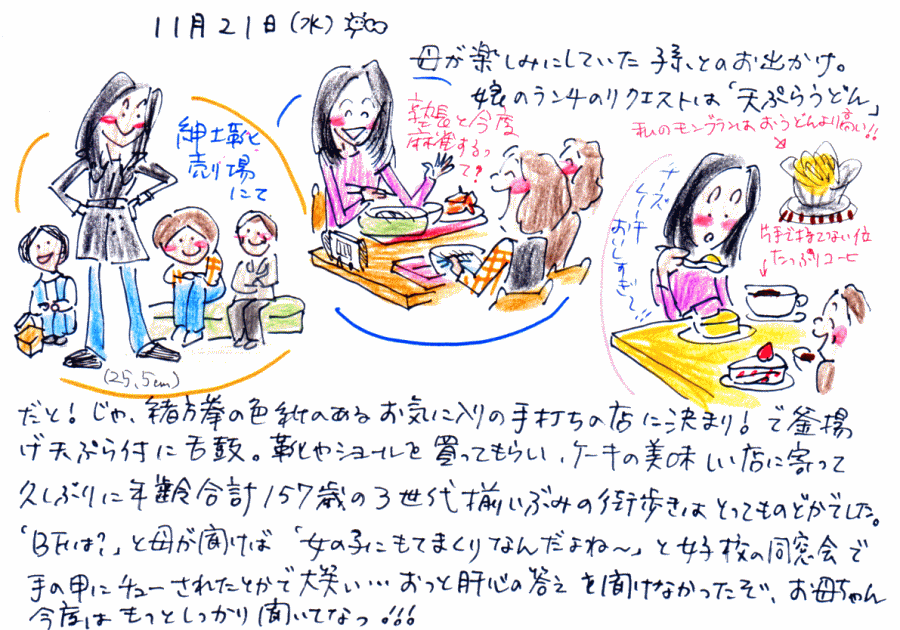 11月21日(水)
母が楽しみにしていた子孫とのお出かけ。
娘のランチのリクエストは「天ぷらうどん」
私のモンブランはおうどんより高い!!
紳士靴
売り場
にて
塾長と今度
麻雀するっ
て?
チーズ
ケーキ
おいしすぎ〜!!
片手で持てない位
たっぷりコーヒ
(25,5cm)
だと!じゃ、緒方拳の色紙のあるお気に入りの手打ちの店に決まり!で釜揚
げ天ぷら付に舌鼓。靴やショールを買ってもらい、ケーキの美味しい店に寄って
久しぶりに年齢合計157歳の3世代揃いぶみの街歩きはとってものどかでした。
「BFは?」と母が聞けば「女の子にもてまくりなんだよね〜」と女子校の同窓会で
手の甲にチューされたとかで大笑い…おっと肝心の答えを聞けなかったぞ、お母ちゃん
今度はもっとしっかり聞いてなっ!!!